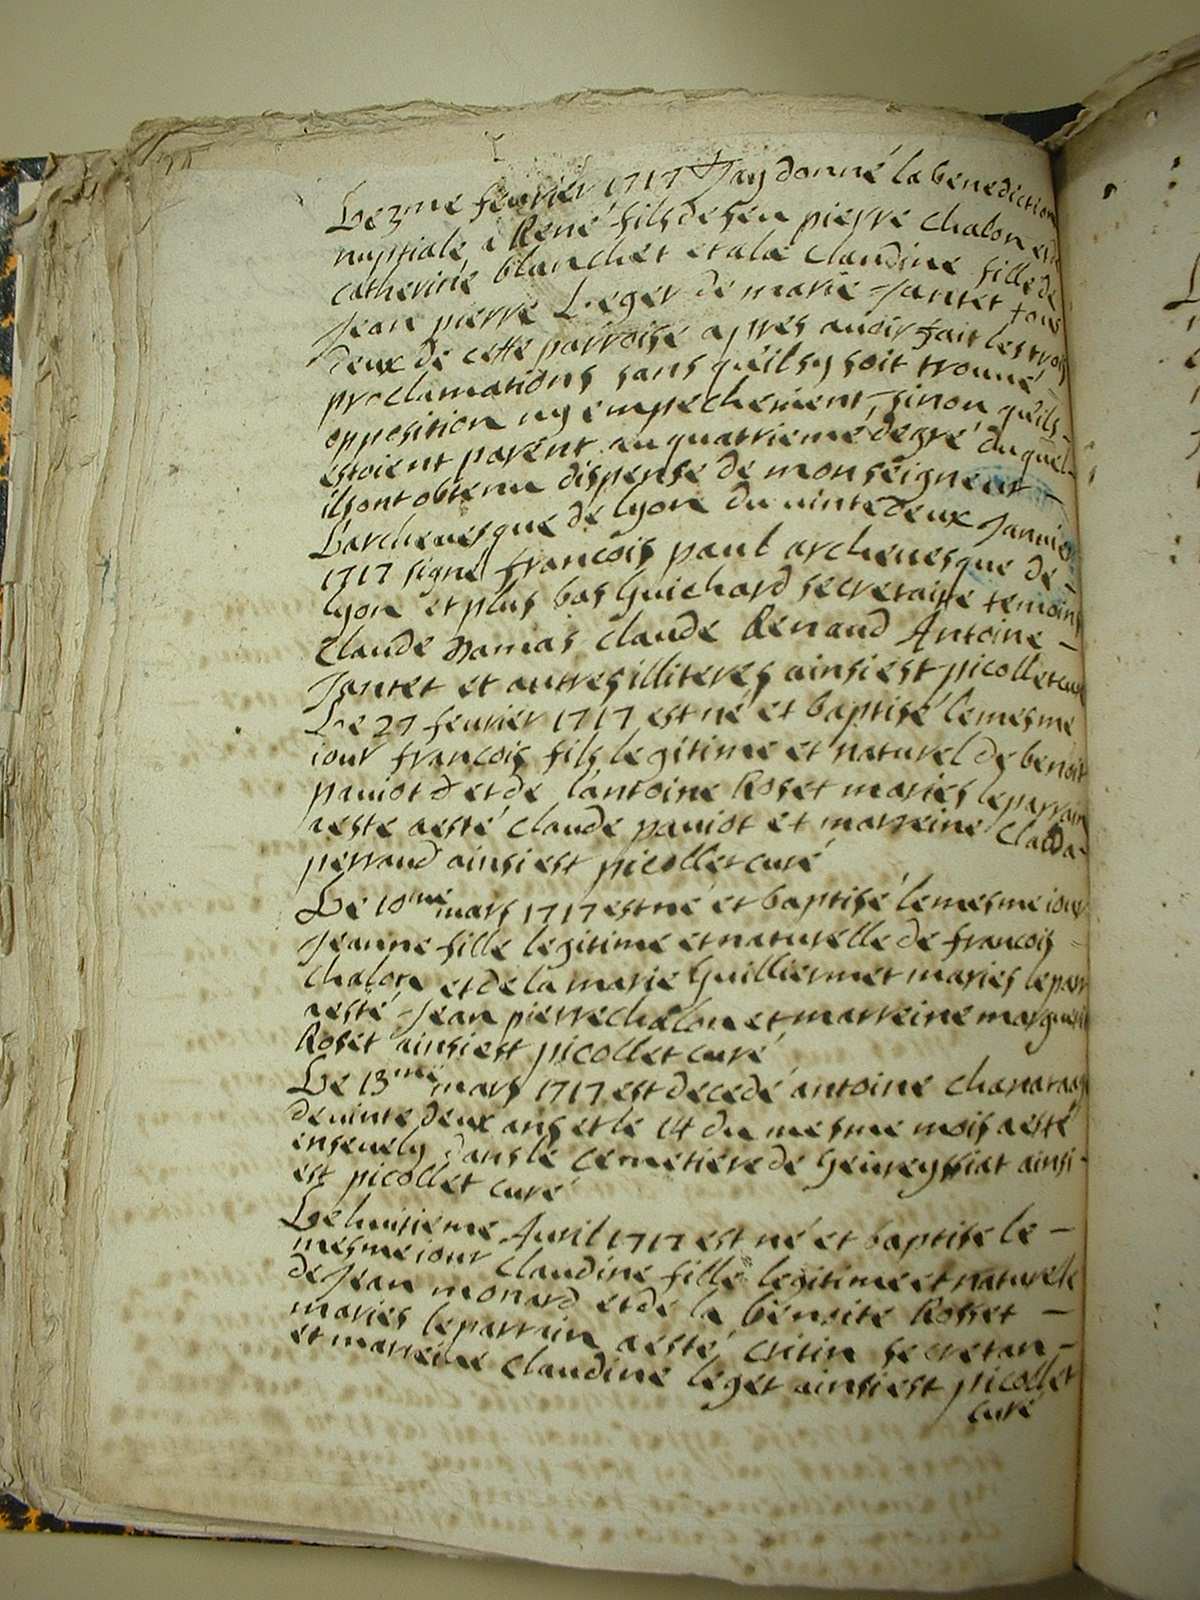 Le 3me feurier 1717 Jay donné la benediction
nuptiale a René fils de feu pierre chalon et de
catherine blanchet et a la claudine fille de
Jean pierre Leger de marie Jantet tous
deux de cette parroise apres auoir fait les trois
proclamations sans quéil sy soit trouué
opposition ny empechement, sinon quéils
estoient parent au quatrieme degré duquel
ils ont obtenu dispense de monseigneur
L'archeuesque de lyon du uintedeux Januier
1717 signé francois paul archeuesque de
lyon et plus bas Guichard secretaire temoins
Claude Damas claude Renaud Antoine
Jantet et autres illiteres ainsi est picollet curé
Le 27 feurier 1717 est né et baptisé le mesme
iour francois fils legitime et naturel de benoit
pauiot et de l'antoine Roset mariés le parrain
aeste aesté claude pauiot et marreine clauda
perraud ainsi est picollet curé
Le 10me mars 1717 est né et baptisé le mesme iour
Jeanne fille legitime et naturelle de francois
chalon et de la marie Guilliermet mariés le parr
aesté Jean pierre chalon et marreine marguerit
Roset ainsi est picollet curé
Le 13me mars 1717 est decedé antoine
de uinte deux ans et le 14 du mesme mois aesté
enseuely dans le cemetiere de Geureyssiat ainsi
est picollet curé
Le huitieme Auril 1717 est né et baptise le
mesme iour claudine fille legitime et naturele
de Jean monard et de la benoite Rosset
mariés le parrain aesté critin secretan
et marreine claudine leget ainsi est picollet
curé